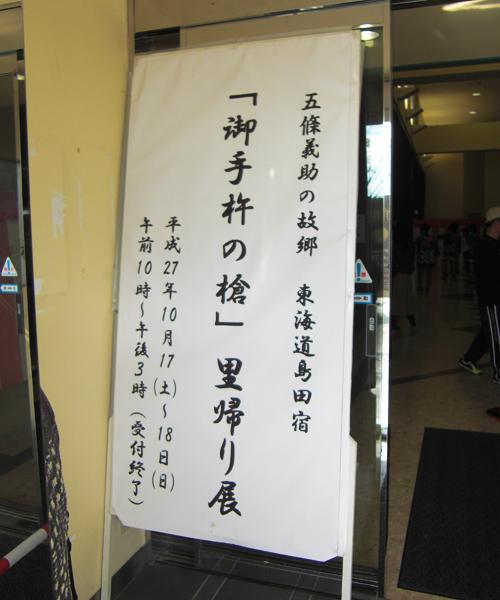 五條義助の故郷　東海道島田宿
「御手杵の槍」里帰り展
平成27年10月17(土)～18日(日)
午前10時～午後3時（受付終了）